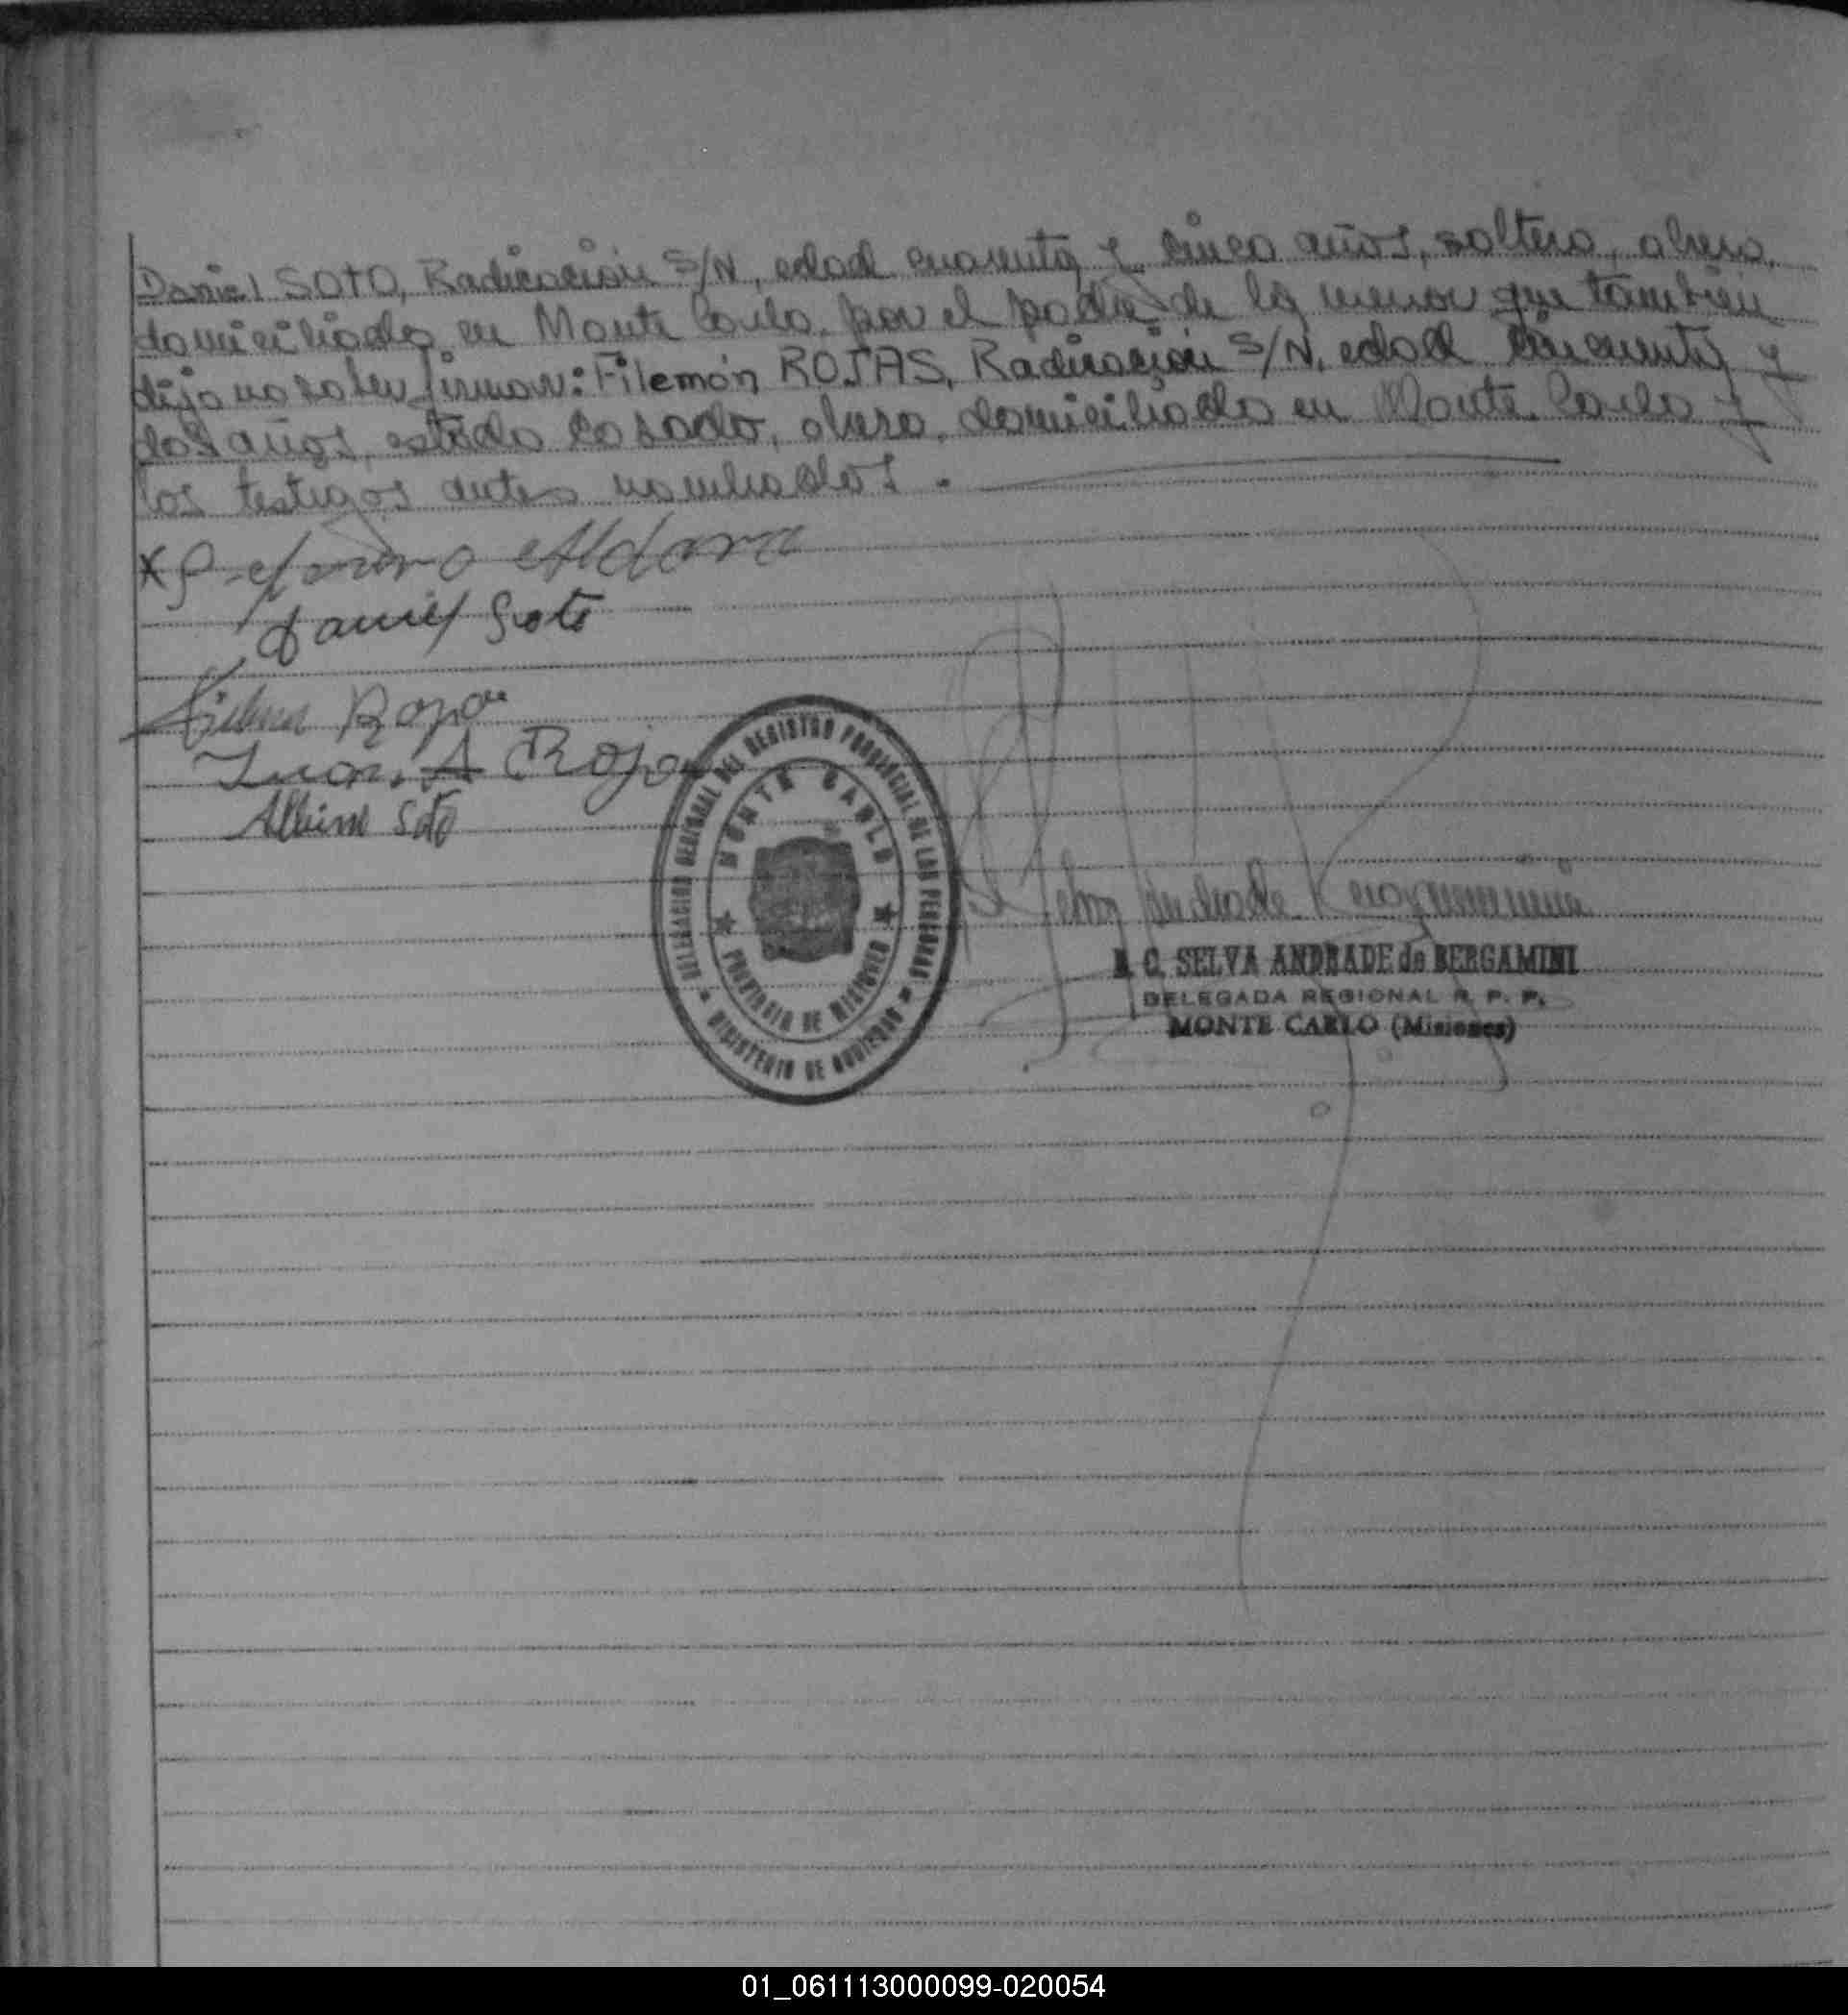 Daniel SOTO, Radicación S/N, edad cuarenta y cinco años, soltero, obrero,
domiciliado en Monte Carlo, por el padre de la menor que también
dijo no saber firmar: Filemón ROJAS, Radicación S/N, edad cincuenta y
dos años, estado casado, obrero, domiciliado en Monte Carlo y
los testigos antes nombrados.
Aldara
Daniel Soto
Rojas
Juan A Rojas
Albino Soto
DELEGACION REGIONAL DEL REGISTRO PROVINCIAL DE LAS PERSONAS
MONTE CARLO
PROVINCIA DE MISIONES
MINISTERIO DE GOBIERNO
Selva Andrade Bergamini
SELVA ANDRADE de BERGAMINI
DELEGADA REGIONAL R. P. P.
MONTE CARLO (Misiones)
01_061113000099-020054